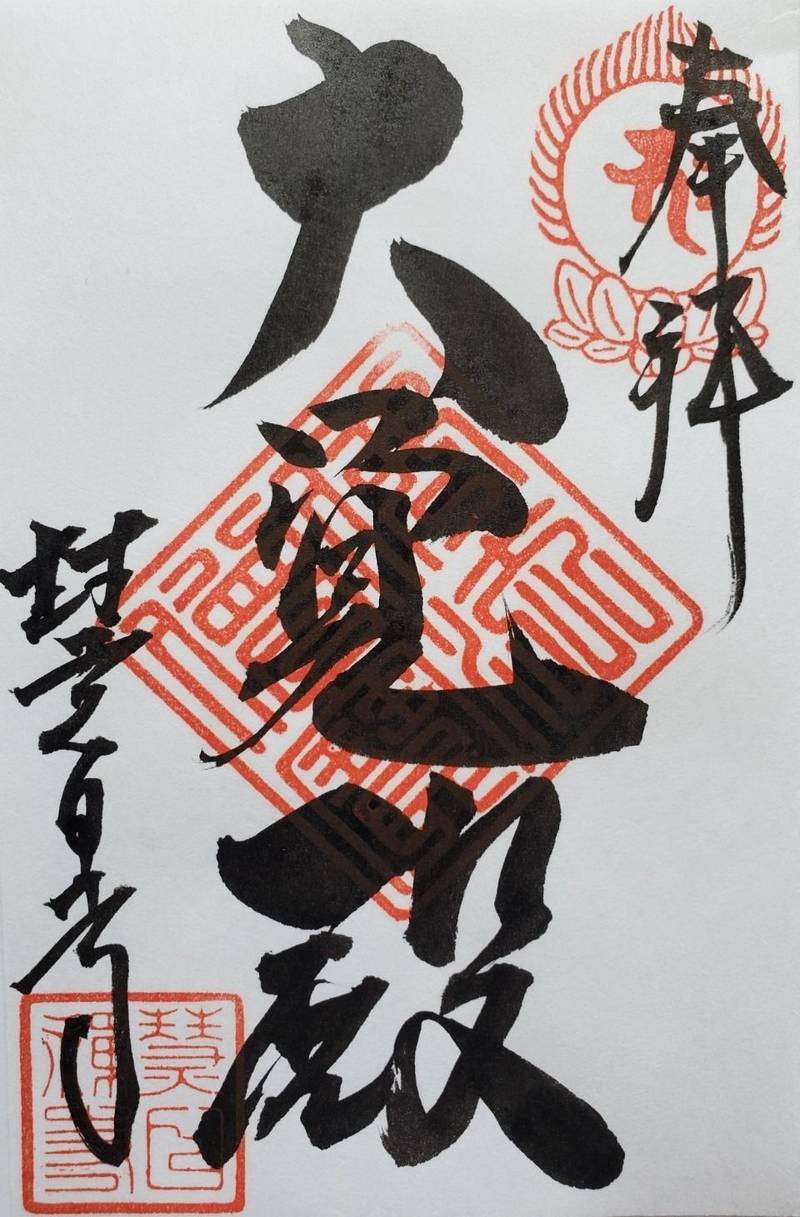 奉拝
大覚殿
慧日寺
慧日
禅寺